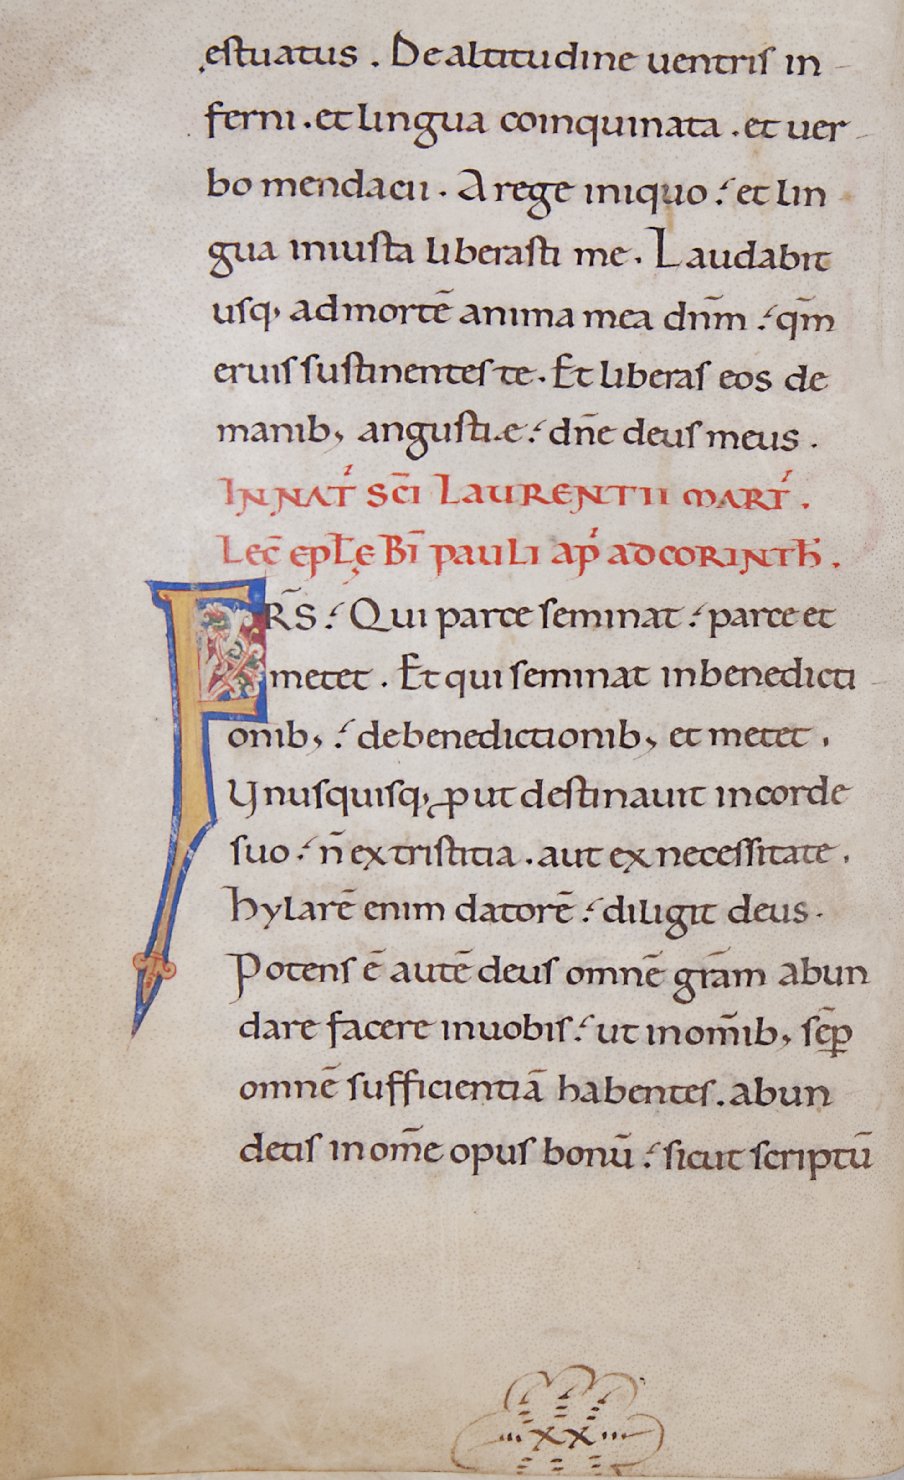 estuatus . De altitudine uentris in
ferni . et lingua coinquinata . et uer
bo mendacii . A rege iniquo ؛ et lin
gua iniusta liberasti me . Laudabit
usq; ad mortē anima mea dn̄m ؛ qm̄
eruis sustinentes te . Et liberas eos de
manib; angustiae ؛ dn̄e deus meus .
IN NAT̓ SC̄I LAURENTII MART̓ .
LEC̄ EPL̄Ę BĪ PAULI AP̓ AD CORINTH̄ .
FRS̄ ؛ Qui parce seminat ؛ parce et
metet . Et qui seminat in benedicti
onib; ؛ de benedictionib; et metet .
Vnusquisq; ꝓut destinauit in corde
suo ؛ n̄ ex tristitia . aut ex necessitate .
hylarē enim datorē ؛ diligit deus .
Potens ē autē deus omnē grām abun
dare facere in uobis ؛ ut in om̄ib; sēꝑ
omnē sufficientiā habentes . abun
detis in om̄e opus bonū ؛ sicut scriptū
xx